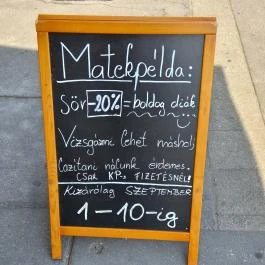 Matekpélda:
Sör -20% = boldog diák
Vizsgázni lehet máshol,
Lazítani nálunk érdemes.
CSAK KP. FIZETÉSNÉL!
Kizárólag SZEPTEMBER
1-10-ig